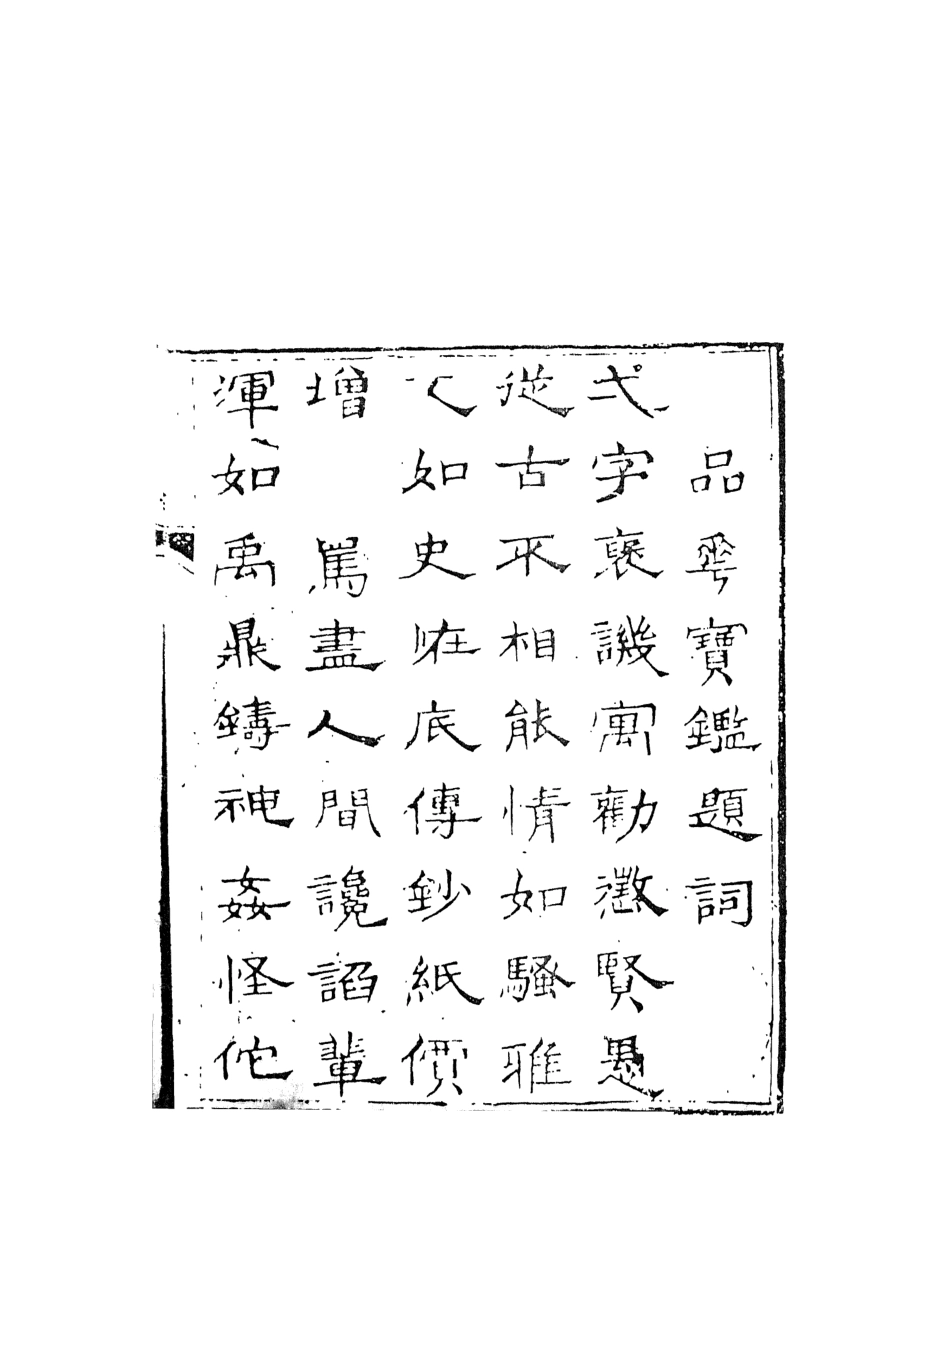 品𠌶寶鑑題詞
弌字褒譏寓勸懲賢愚
從古不相能情如騷雅
文如史恠底傳鈔紙價
增　罵盡人間讒諂輩
渾如禹鼎鑄神姦怪佗